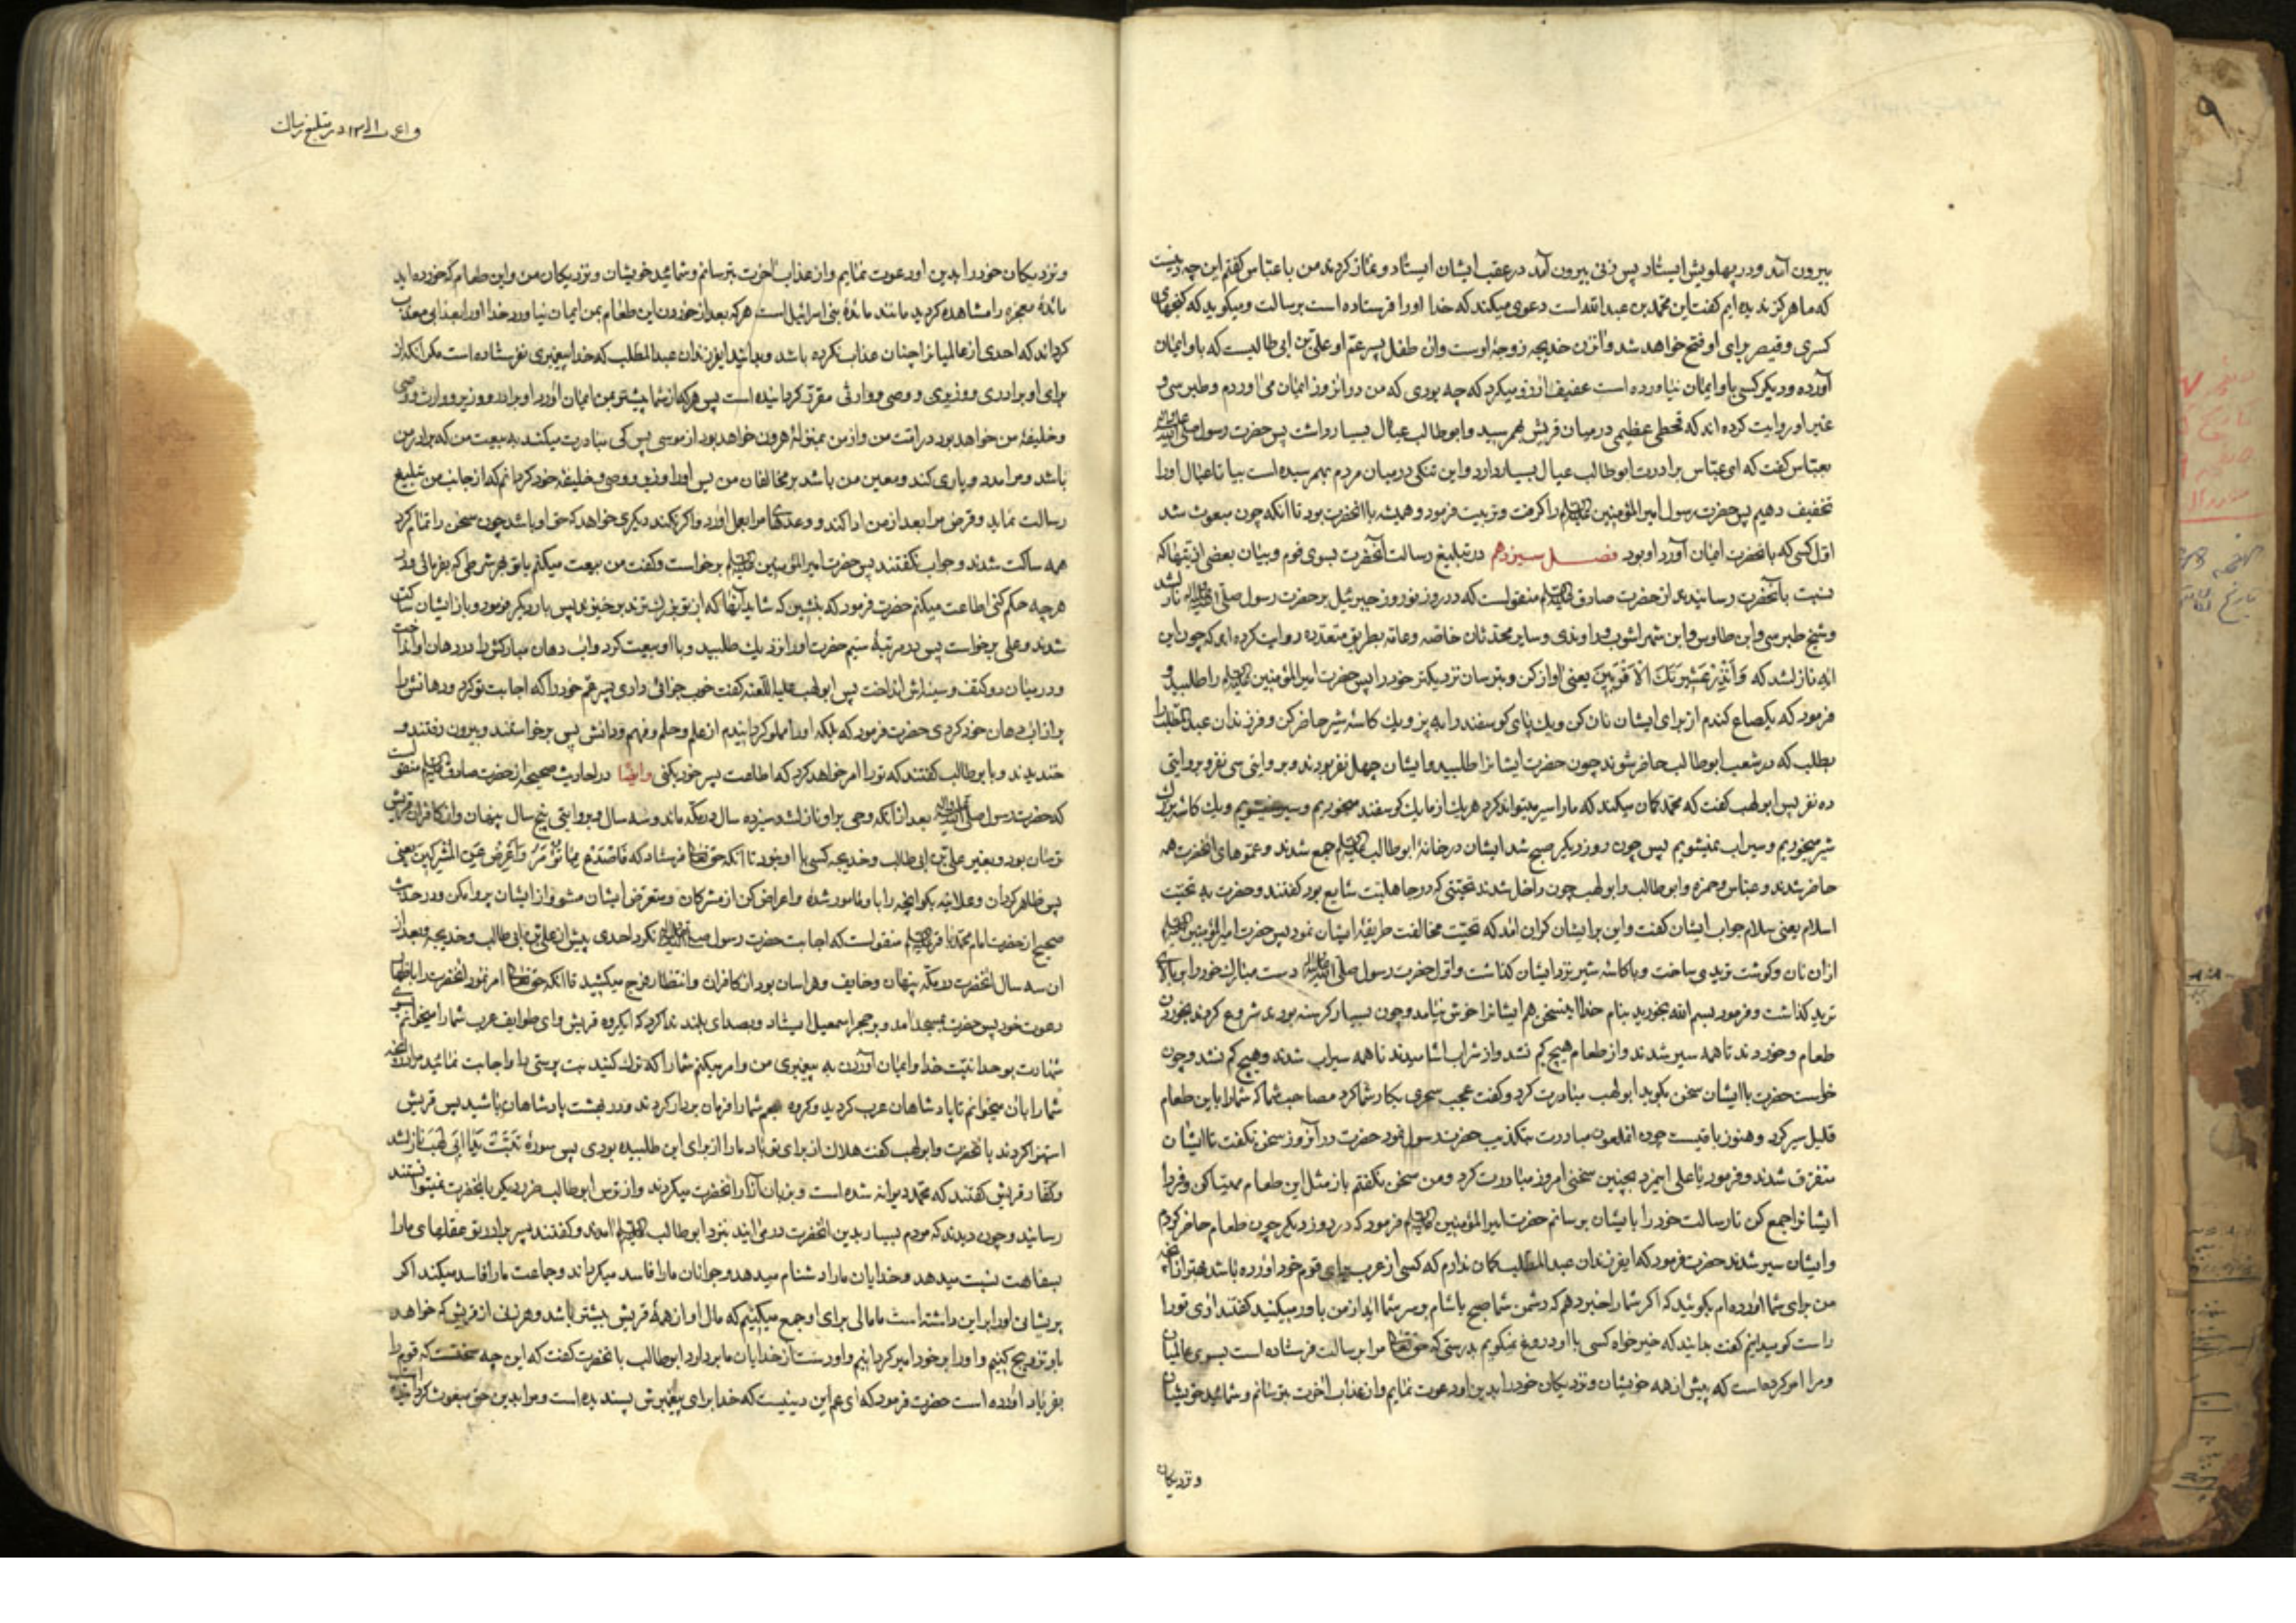 بیرون آمد و در پهلویش ایستاد پس زنی بیرون آمد در عقب ایشان ایستاد و نماز کردند من با عباس گفتم این چه دینست
که ما هرگز ندیده ایم گفت این محمد بن عبد الله است دعوی میکند که خدا او را فرستاده است برسالت و میگوید که گنجهای
کسری و قیصر برای او فتح خواهد شد و آن زن خدیجه زوجهٔ اوست و آن طفل پسر عم او علی بن ابی طالبست که باو ایمان
آورده و دیگر کسی باو ایمان نیاورده است عفیف آرزو میکرد که چه بودی که من در آنروز ایمان می آوردم و طبرسی و
غیر او روایت کرده اند که قحطی عظیمی در میان قریش بهم رسید و ابو طالب عیال بسیار داشت پس حضرت رسول صلی الله علیه وآله
بعباس گفت که ای عباس برادرت ابو طالب عیال بسیار دارد و این تنگی در میان مردم بهم رسیده است بیا تا عیال او را
تخفیف دهیم پس حضرت رسول امیر المؤمنین علیه السلام را گرفت و تربیت فرمود و همیشه با آنحضرت بود تا آنکه چون مبعوث شد
اول کسی که بآنحضرت ایمان آورد او بود فصل سیزدهم در تبلیغ رسالت آنحضرت بسوی قوم و بیان بعضی از تعبها که
نسبت بآنحضرت رسانیدند از حضرت صادق علیه السلام منقولست که در روز نوروز جبرئیل بر حضرت رسول صلی الله علیه وآله نازل شد
و شیخ طبرسی و ابن طاوس و ابن شهر آشوب و راوندی و سایر محدثان خاصه و عامه بطریق متعدده روایت کرده اند که چون این
آیه نازلشد که وَأَنْذِرْ عَشِيرَتَكَ الْأَقْرَبِينَ یعنی آواز کن و بترسان نزدیکتر خود را پس حضرت امیر المؤمنین علیه السلام را طلبید و
فرمود که یکصاع گندم از برای ایشان نان کن و یک پای گوسفند را بپز و یک کاسه شیر حاضر کن و فرزندان عبد المطلب را
بطلب که در شعب ابو طالب حاضر شوند چون حضرت ایشانرا طلبید و ایشان چهل نفر بودند و بروایتی سی نفر و بروایتی
ده نفر پس ابو لهب گفت که محمد گمان میکند که ما را سیر میتواند کرد هر یک از ما یک گوسفند میخوریم و سیر نمیشویم و یک کاسه بزرگ
شیر میخوریم و سیراب نمیشویم پس چون روز دیگر صبح شد ایشان در خانهٔ ابو طالب علیه السلام جمع شدند و عموهای آنحضرت همه
حاضر شدند و عباس و حمزه و ابو طالب و ابو لهب چون داخل شدند تحیتی که در جاهلیت شایع بود گفتند و حضرت به تحیت
اسلام یعنی سلام جواب ایشان گفت و این بر ایشان گران آمد که تحیت مخالفت طریقهٔ ایشان نمود پس حضرت امیر المؤمنین علیه السلام
از ان نان و گوشت تریدی ساخت و با کاسه شیر نزد ایشان گذاشت و اول حضرت رسول صلی الله علیه وآله دست مبارک خود را بر بالای
ترید گذاشت و فرمود بسم الله بخورید بنام خدا اینسخن هم ایشانرا خوش نیامد و چون بسیار گرسنه بودند شروع کردند بخوردن
طعام و خوردند تا همه سیر شدند و از طعام هیچ کم نشد و از شراب آشامیدند تا همه سیراب شدند و هیچ کم نشد و چون
خواست حضرت با ایشان سخن بگوید ابو لهب مبادرت کرد و گفت عجب سحری بکار شما کرد مصاحب شما که شما را باین طعام
قلیل سیر کرد و هنوز باقیست چون آنملعون مبادرت بتکذیب حضرت رسول نمود حضرت در آنروز سخن نگفت تا ایشان
متفرق شدند و فرمود یا علی اینمرد بچنین سخنی امروز مبادرت کرد و من سخن نگفتم باز مثل این طعام مهیا کن و فردا
ایشانرا جمع کن تا رسالت خود را بایشان برسانم حضرت امیر المؤمنین علیه السلام فرمود که در روز دیگر چون طعام حاضر کردم
و ایشان سیر شدند حضرت فرمود که ایفرزندان عبد المطلب گمان ندارم که کسی از عرب برای قوم خود آورده باشد بهتر از آنچه
من برای شما آورده ام بگوئید که اگر شما را خبر دهم که دشمن شما صبح یا شام بر سر شما آید از من باور میکنید گفتند آری تو را
راست گو میدانیم گفت بدانید که خیر خواه کسی با او دروغ نمیگویم بدرستی که حق تعالی مرا برسالت فرستاده است بسوی عالمیان
و مرا امر کرده است که پیش از همه خویشان و نزدیکان خود را بدین او دعوت نمایم و از عذاب آخرت بترسانم و شمائید خویشان
و نزدیکان
در تبلیغ رسالت
و نزدیکان خود را بدین او دعوت نمایم و از عذاب آخرت بترسانم و شمائید خویشان و نزدیکان من و این طعام که خورده اید
مائدهٔ معجزه را مشاهده کردید مانند مائدهٔ بنی اسرائیل است هر که بعد از خوردن این طعام بمن ایمان نیاورد خدا او را بعذابی معذب
گرداند که احدی از عالمیانرا چنان عذاب نکرده باشد و بدانید ایفرزندان عبد المطلب که خدا پیغمبری نفرستاده است مگر آنکه از
برای او برادری و وزیری و وصی و وارثی مقرر گردانیده است پس هر که از شما پیشتر بمن ایمان آورد او برادر و وزیر و وارث و وصی
و خلیفهٔ من خواهد بود در امت من و از من بمنزلهٔ هرون خواهد بود از موسی پس کی مبادرت میکند به بیعت من که برادر من
باشد و مرا مدد و یاری کند و معین من باشد بر مخالفان من پس او را وزیر و وصی و خلیفهٔ خود گردانم که از جانب من تبلیغ
رسالت نماید و قرض مرا بعد از من ادا کند و وعدهای مرا بعمل آورد و اگر نکند دیگری خواهد کرد که حق او باشد چون سخن را تمام کرد
همه ساکت شدند و جواب نگفتند پس حضرت امیر المؤمنین علیه السلام برخواست و گفت من بیعت میکنم با تو بهر شرطی که بفرمائی و در
هر چه حکم کنی اطاعت میکنم حضرت فرمود که بنشین که شاید آنها که از تو بزرگترند برخیزند پس بار دیگر فرمود و باز ایشان ساکت
شدند و علی برخواست پس در مرتبهٔ سیم حضرت او را نزدیک طلبید و با او بیعت کرد و آب دهان مبارکش را در دهان او انداخت
و در میان دو کتف و سینه اش انداخت پس ابو لهب علیه اللعنه گفت خوب جزائی دادی پسر عم خود را که اجابت تو کرد و دهانش را
پر از آب دهان خود کردی حضرت فرمود که بلکه او را مملو گردانیدم از علم و حلم و فهم و دانش پس برخواستند و بیرون رفتند و
خندیدند و با ابو طالب گفتند که تو را امر خواهد کرد که اطاعت پسر خود بکنی وایضا در احادیث صحیحه از حضرت صادق علیه السلام منقولست
که حضرت رسول صلی الله علیه وآله بعد از آنکه وحی بر او نازلشد سیزده سال در مکه ماند و سه سال و بروایتی پنج سال پنهان و از کافران قریش
ترسان بود و بغیر علی بن ابی طالب و خدیجه کسی با او نبود تا آنکه حق تعالی فرستاد که فَاصْدَعْ بِمَا تُؤْمَرُ وَأَعْرِضْ عَنِ الْمُشْرِكِينَ یعنی
پس ظاهر گردان و علانیه بگو آنچه را باو مامور شدهٔ و اعراض کن از مشرکان و متعرض ایشان مشو و از ایشان پروا مکن و در حدیث
صحیح از حضرت امام محمد باقر علیه السلام منقولست که اجابت حضرت رسول صلی الله علیه وآله نکرد احدی پیش از علی بن ابی طالب و خدیجه و بعد از
ان سه سال آنحضرت در مکه پنهان و خایف و هراسان بود از کافران و انتظار فرج میکشید تا آنکه حق تعالی امر نمود آنحضرت را باظهار
دعوت خود پس حضرت بمسجد آمد و بر حجر اسمعیل ایستاد و بصدای بلند ندا کرد که ایگروه قریش و ای طوایف عرب شما را میخوانم بسوی
شهادت بوحدانیت خدا و ایمان آوردن به پیغمبری من و امر میکنم شما را که ترک کنید بت پرستی را و اجابت نمائید مرا در آنچه
شما را بآن میخوانم تا پادشاهان عرب گردید و گروه عجم شما را فرمان بردار گردند و در بهشت پادشاهان باشید پس قریش
استهزا کردند بآنحضرت و ابو لهب گفت هلاک از برای تو باد ما را از برای این طلبیده بودی پس سورهٔ تَبَّتْ يَدَا أَبِي لَهَبٍ نازلشد
و کفار قریش گفتند که محمد دیوانه شده است و بزبان آزار آنحضرت میکردند و از ترس ابو طالب ضرر دیگر بآنحضرت نمیتوانستند
رسانید و چون دیدند که مردم بسیار بدین آنحضرت در می آیند بنزد ابو طالب علیه السلام آمدند و گفتند پسر برادر تو عقلهای ما را
بسفاهت نسبت میدهد و خدایان ما را دشنام میدهد و جوانان ما را فاسد میگرداند و جماعت ما را فاسد میکند اگر
پریشانی او را بر این داشته است ما مالی برای او جمع میکنیم که مال او از همهٔ قریش بیشتر باشد و هر زنی از قریش که خواهد
باو تزویج کنیم و او را بر خود امیر گردانیم و او دست از خدایان ما بردارد ابو طالب بآنحضرت گفت که این چه سخنست که قوم را
بفریاد آورده است حضرت فرمود که ای عم این دینیست که خدا برای پیغمبرانش پسندیده است و مرا بدین حق مبعوث گردانیده است